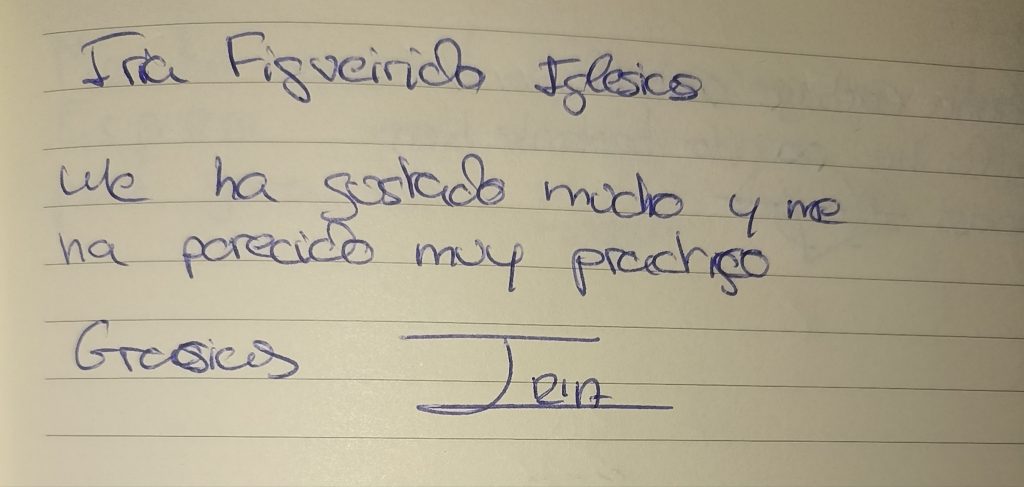 Iria Figueirido Iglesias
Me ha gustado mucho y me
ha parecido muy practico
Grasias IRIA